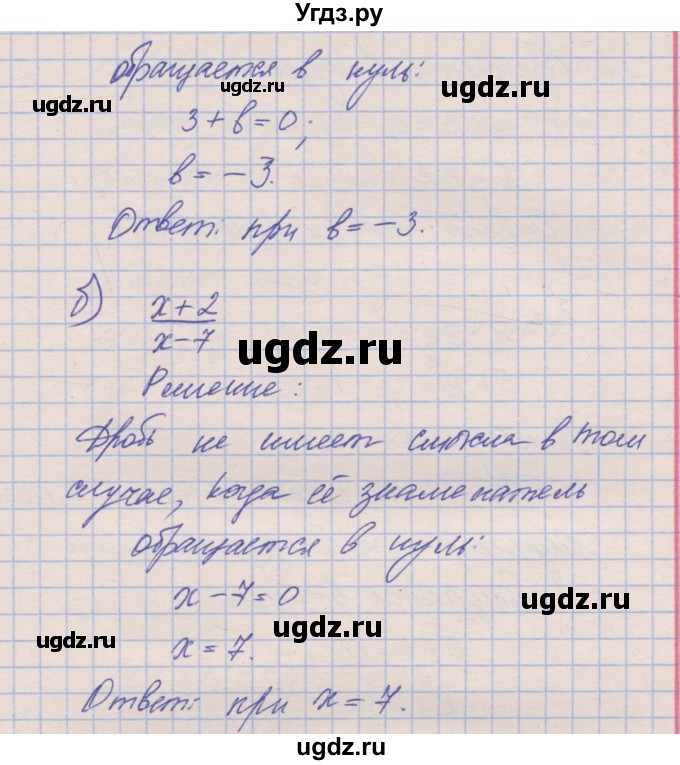 Угдз.ру
обращается в нуль:
3 + в = 0;
в = - 3.
Ответ: при в = - 3.
б) x + 2
x - 7
Решение:
Дробь не имеет смысла в том
случае, когда её знаменатель
обращается в нуль:
x - 7 = 0
x = 7.
Ответ: при x = 7.
ugdz.ru
ugdz.ru
ugdz.ru
ugdz.ru
ugdz.ru
ugdz.ru
ugdz.ru
ugdz.ru
ugdz.ru